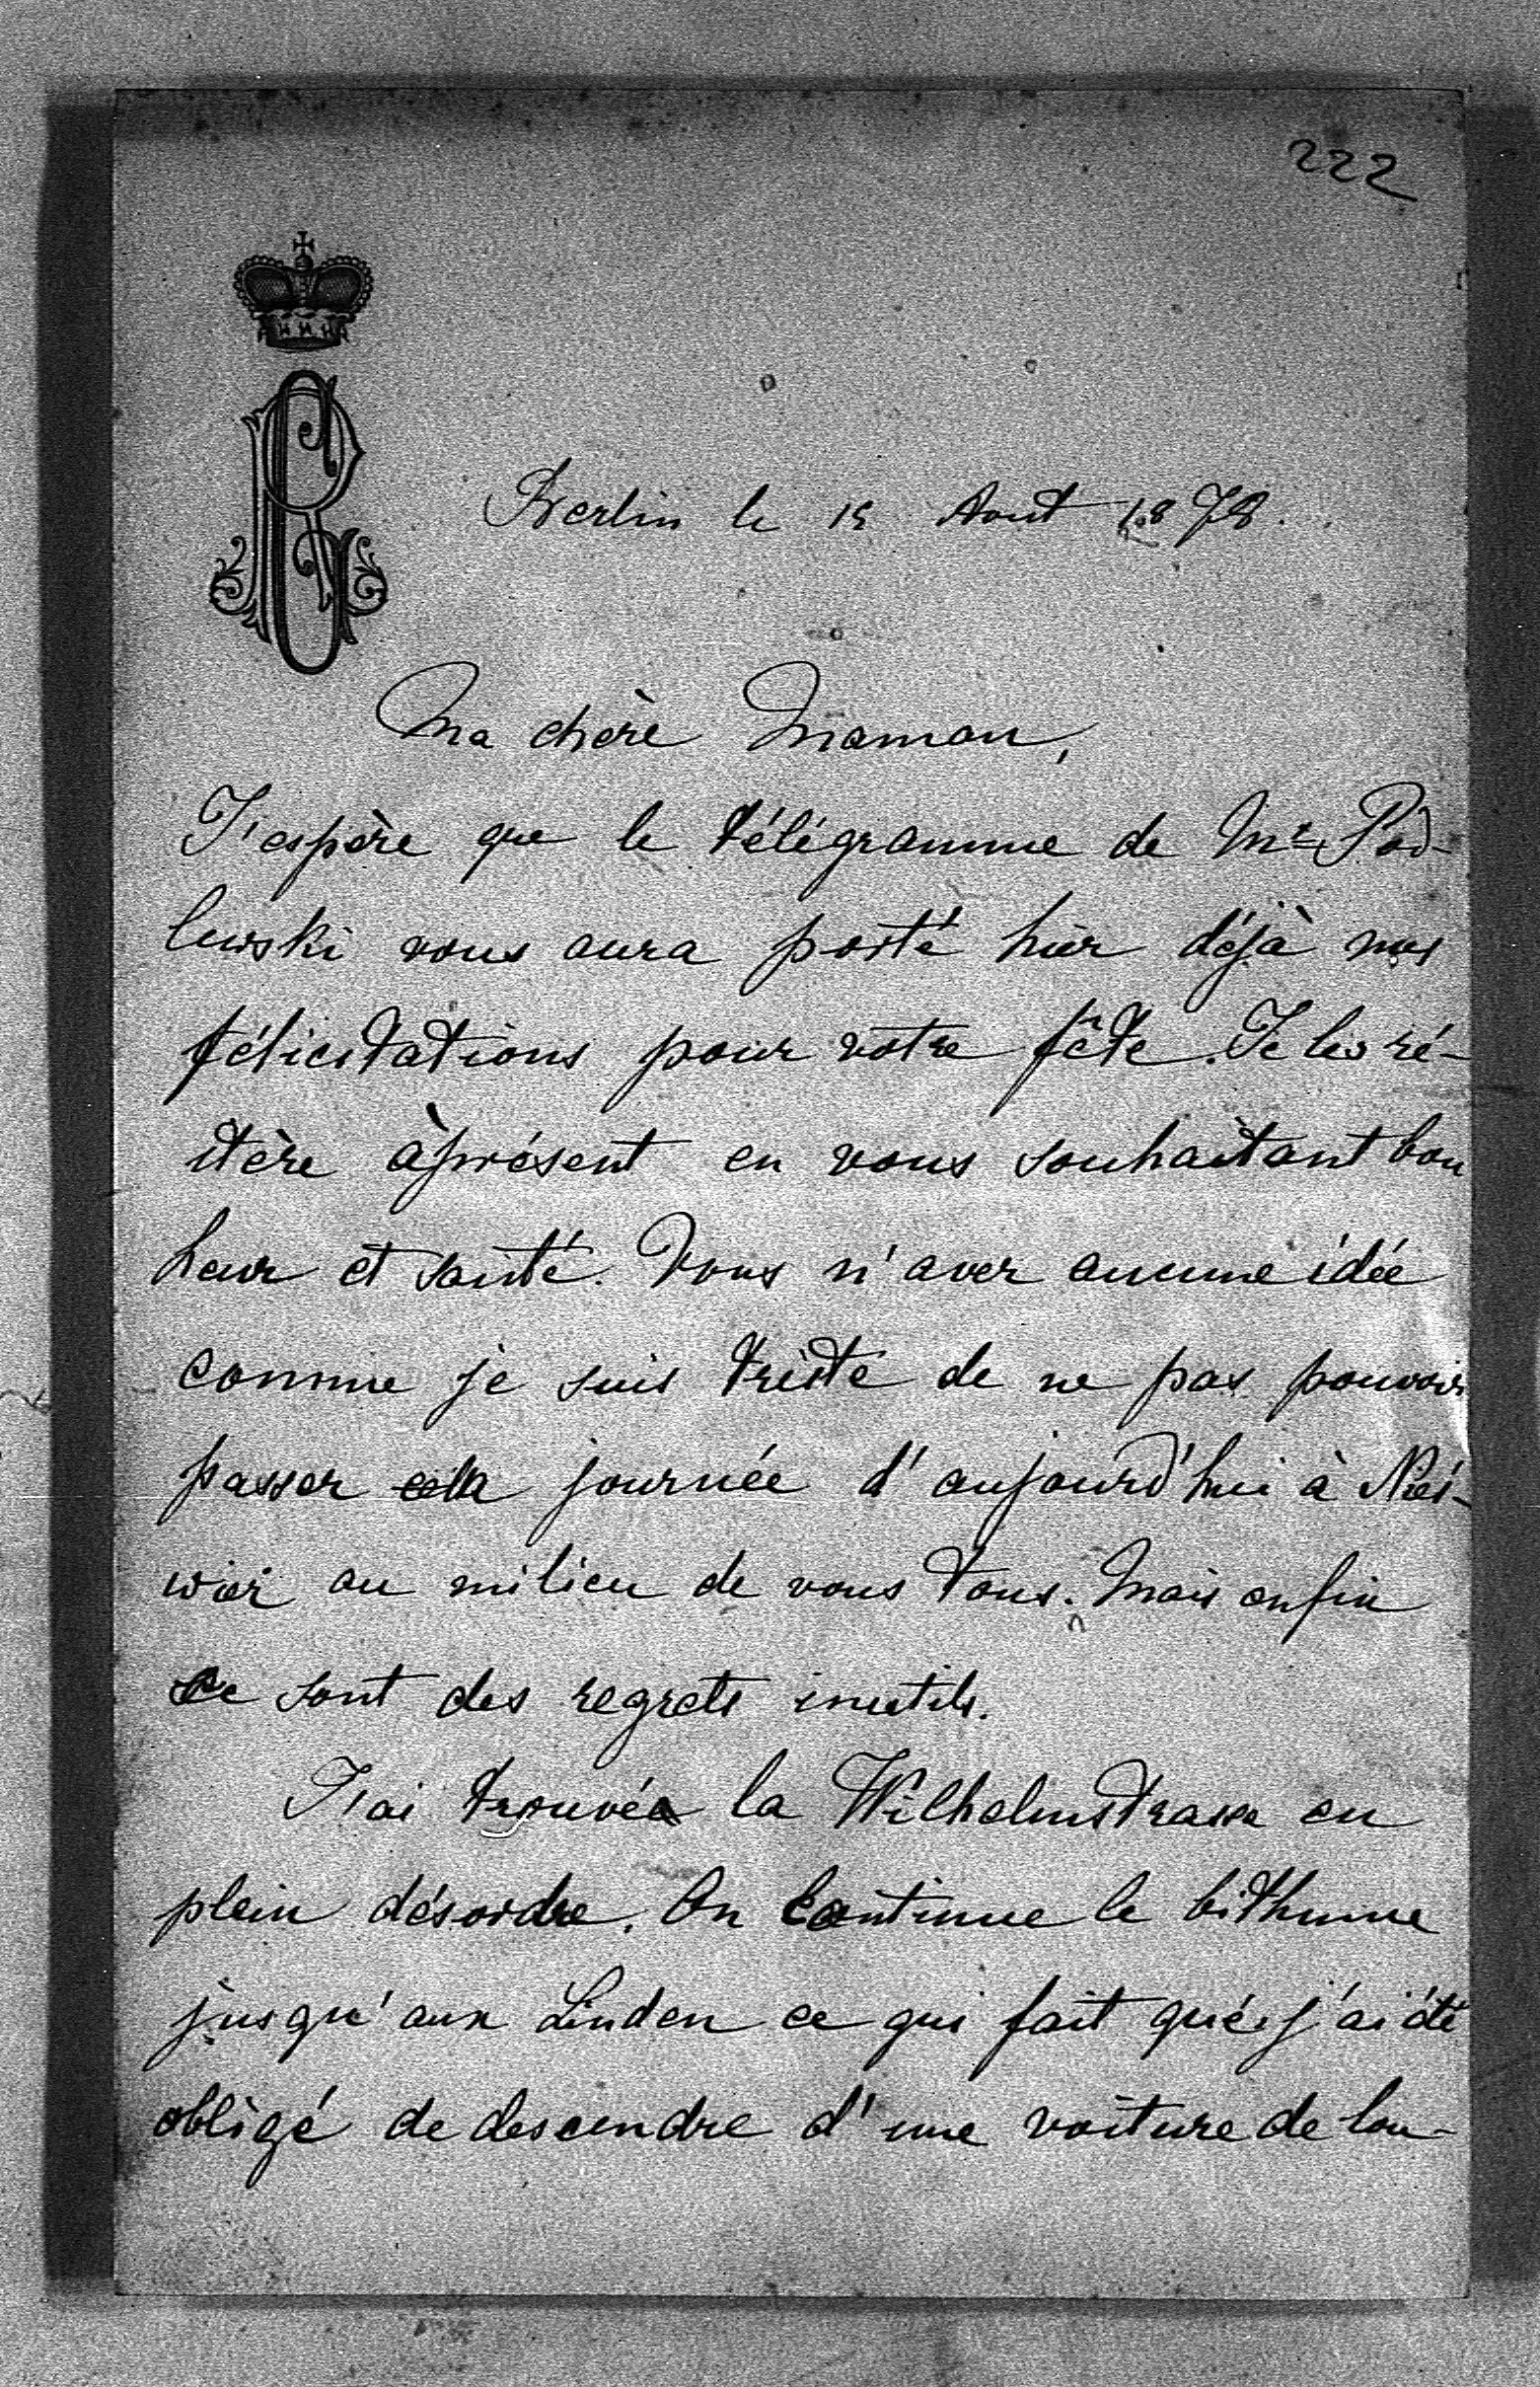 222
Berlin le 15 Aout 1878.
Ma chère Maman,
J'espère que le télégramme de Mr Pod-
lewski vous aura porté hier déjà mes
félicitations pour votre fête. Je les ré-
itère àprésent en vous souhaitant bon
heur et santé. Vous n'avez aucune idée
comme je suis triste de ne pas pouvoir
passer la journée d'aujourd'hui à Niés-
wież au milieu de vous tous. Mais enfin
ce sont des regrets inutils.
J'ai trouvé la Wilhelmstrasse en
plein désordre. On continue le bithume
jusqu'aux Linden ce qui fait que j'ai été
obligé de descendre d'une voiture de lou-